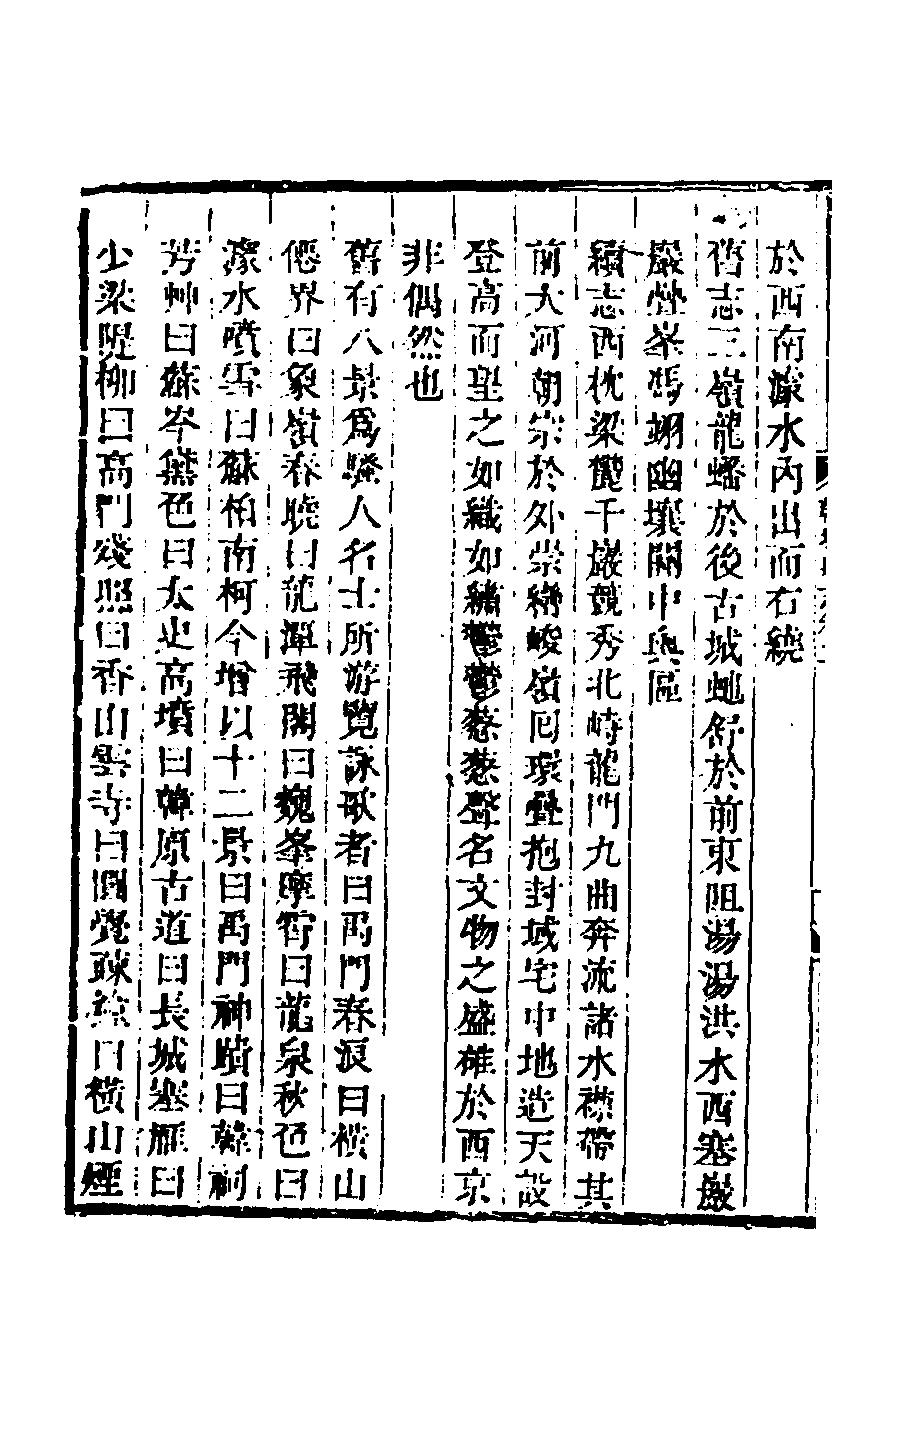 於西南濠水內出而右繞
舊志三嶺龍蟠於後古城虵舒於前東阻湯湯洪水西塞巖
巖疊峯馮翊幽壤關中奥區
續志西枕梁千巖競秀北峙龍門九曲奔流諸水襟帶其
前大河朝宗於外崇巒峻嶺囘環疊抱封域宅中地造天設
登高而望之如織如繡鬱鬱葱葱聲名文物之盛雄於西京
非偶然也
舊有八景爲騷人名士所游覽詠歌者曰禹門春浪曰橫山
僊界曰象嶺春曉曰龍潭飛閣曰巍峯摩霄曰龍泉秋色曰
濠水噴雪曰蘇柏南柯今增以十二景曰禹門神蹟曰韓祠
芳艸曰蘇岑黛色曰太史高墳曰韓原古道曰長城塞雁曰
少梁隄柳曰高門殘照曰香山雲寺曰圓覺疎鐘曰橫山煙